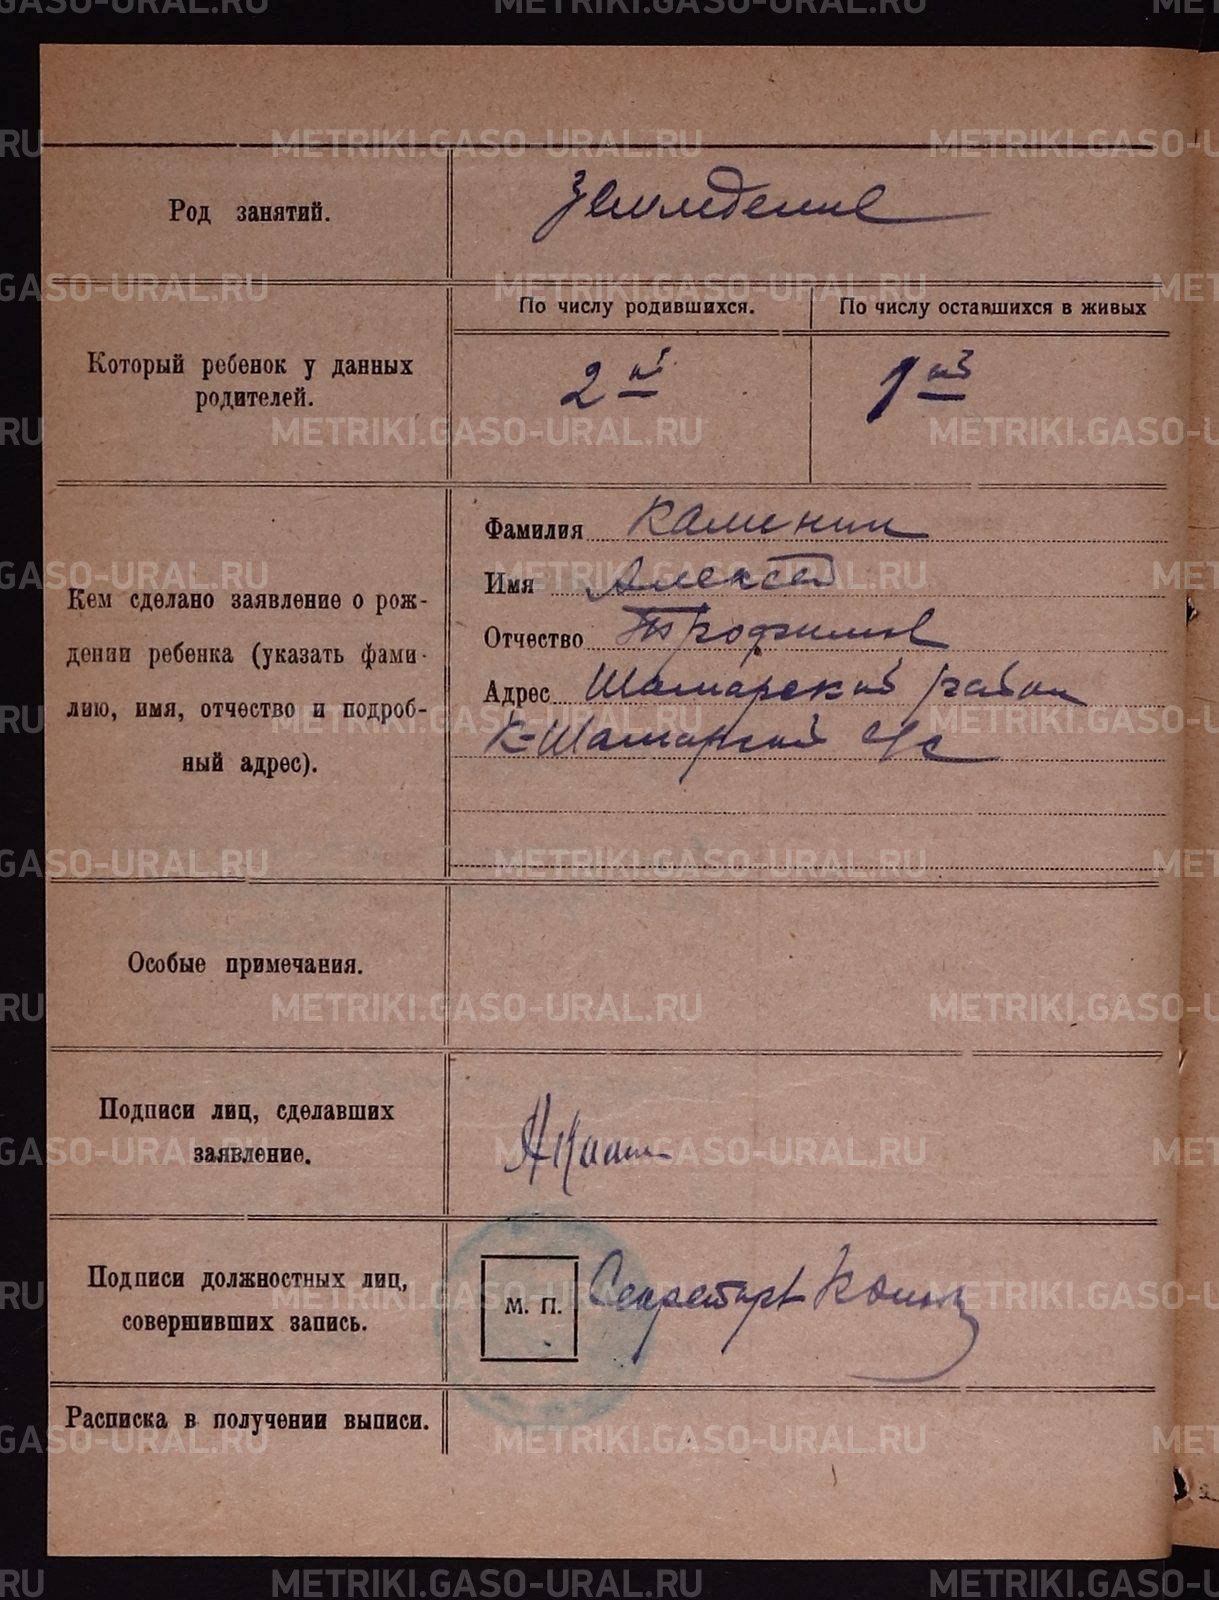 Род занятий.
Земледелие
Который ребенок у данных
родителей.
По числу родившихся.
По числу оставшихся в живых
2 й
1 й
Кем сделано заявление о рож-
дении ребенка (указать фами-
лию, имя, отчество и подроб-
ный адрес).
Фамилия Каменин
Имя Алексей
Отчество Трофимов
Адрес Шамарский район
К-Шамарский с/с
Особые примечания.
Подписи лиц, сделавших
заявление.
Подписи должностных лиц,
совершивших запись.
М. П.
Секретарь
Расписка в получении выписи.
METRIKI.GASO-URAL.RU